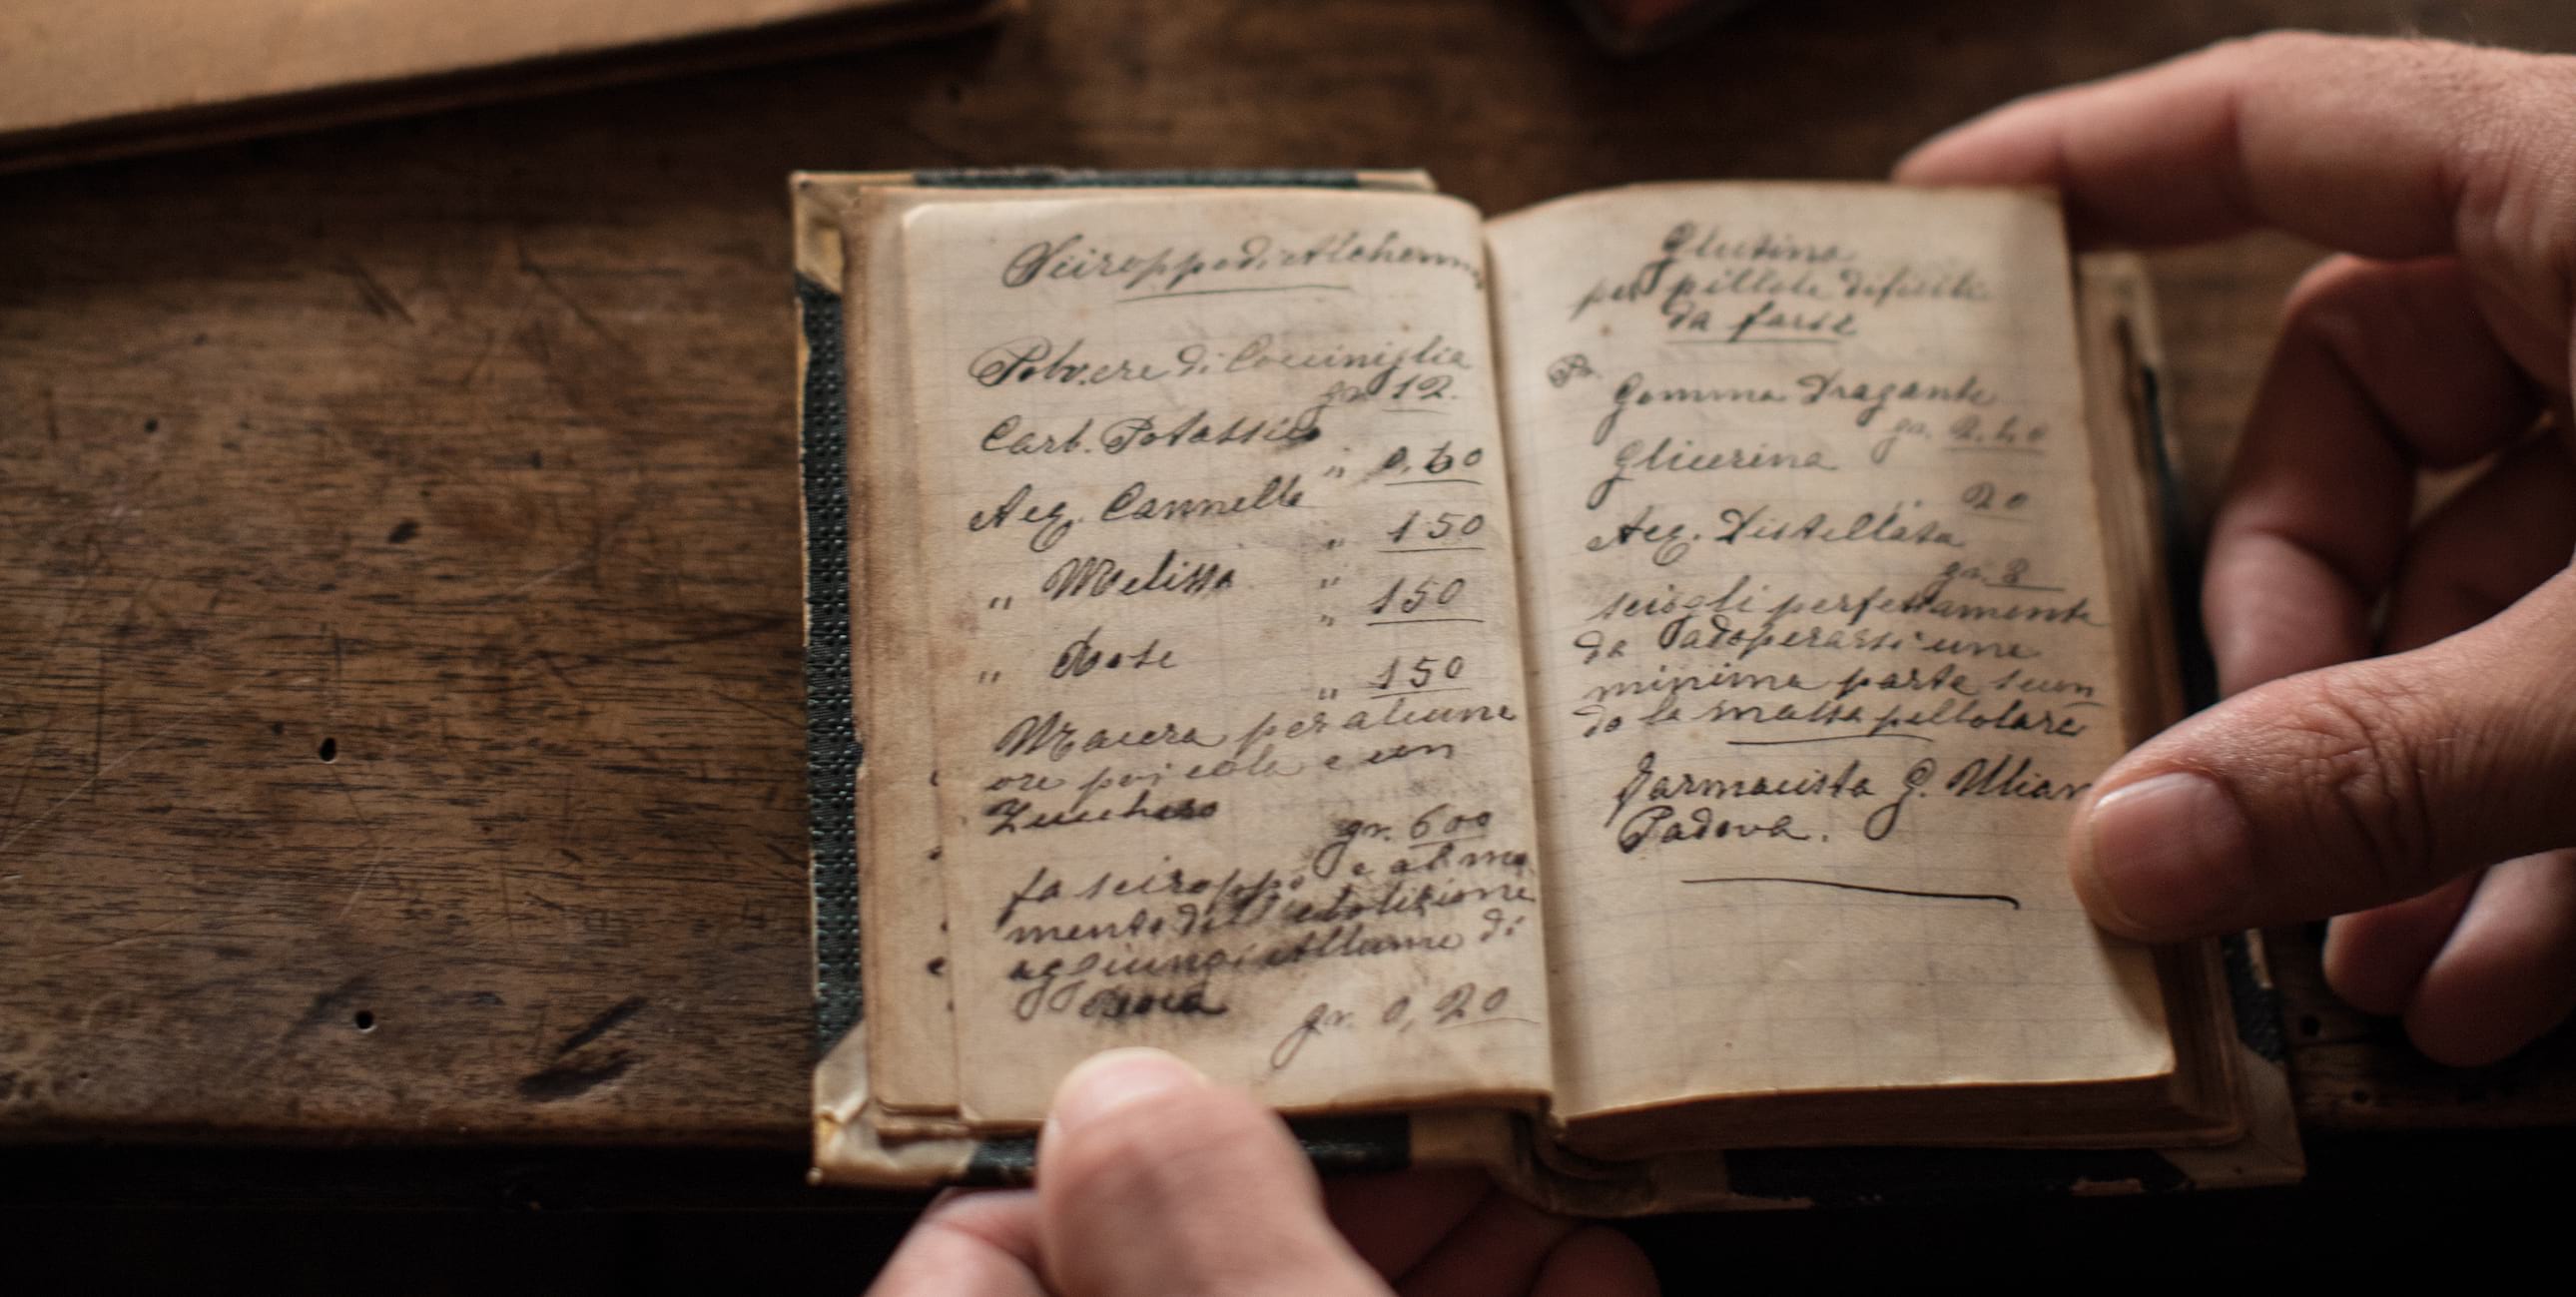 Sciroppo di Alchermes
Polvere di Cocciniglia
gr. 12.
Carb. Potassico
" 0.60
Acq. Cannella
" 150
" Melissa "
" 150
" Rose
" 150
Macera per alcune
ore poi cola e con
Zucchero
gr. 600
fa sciroppo e al mo
mento dell'ebolizione
aggiungi Allume di
Roca
gr. 0,20
Glutina
per pillole dificili
da farsi
Gomma Dragante
gr.
Glicerina
" 20
Acq. Distillata
gr. 3
sciogli perfettamente
da adoperarsi una
minima parte secon
do la massa pillolare
Farmacista G. Ulian
Padova.